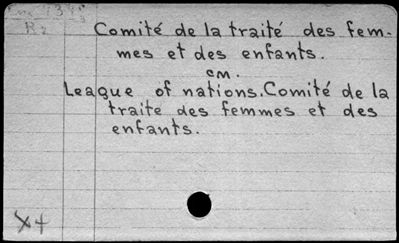 R2
Comité de la traité des fem-
mes et des enfants.
cm.
League of nations. Comité de la
traite des femmes et des
enfants.
X4